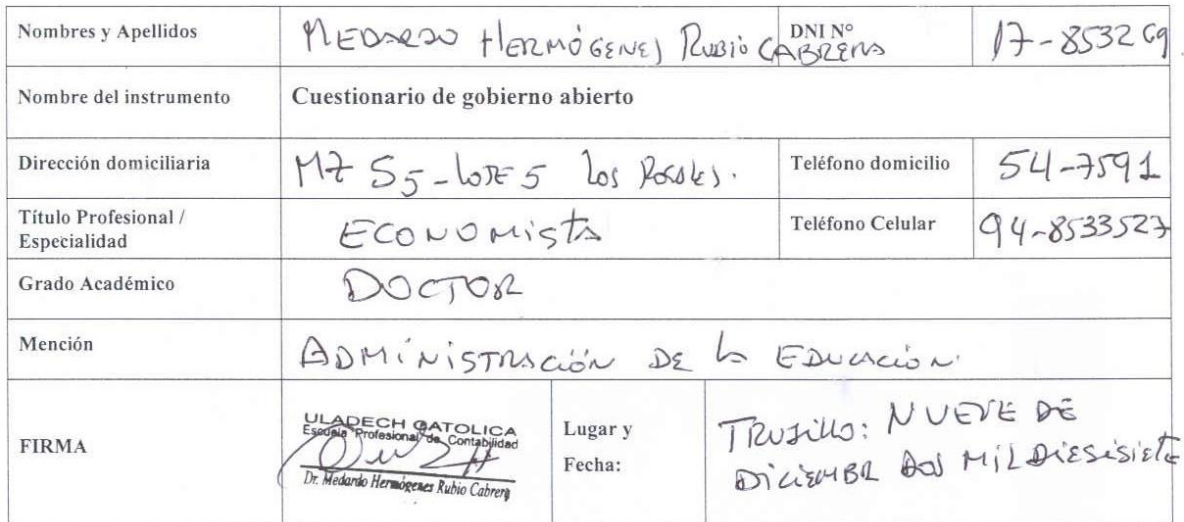 Nombres y Apellidos MEDARDO HERMÓGENES RUBIO CABRERA DNI N° 17-853269
Nombre del instrumento Cuestionario de gobierno abierto
Dirección domiciliaria MZ S5-LOTE 5 Los Rosales. Teléfono domicilio 54-7591
Título Profesional / Especialidad ECONOMISTA Teléfono Celular 94-8533527
Grado Académico DOCTOR
Mención ADMINISTRACIÓN DE LA EDUCACIÓN
FIRMA
ULADECH CATOLICA
Escuela Profesional de Contabilidad
Dr. Medardo Hermógenes Rubio Cabrera
Lugar y
Fecha:
TRUJILLO: NUEVE DE
DICIEMBR DOS MIL DIESISIETE